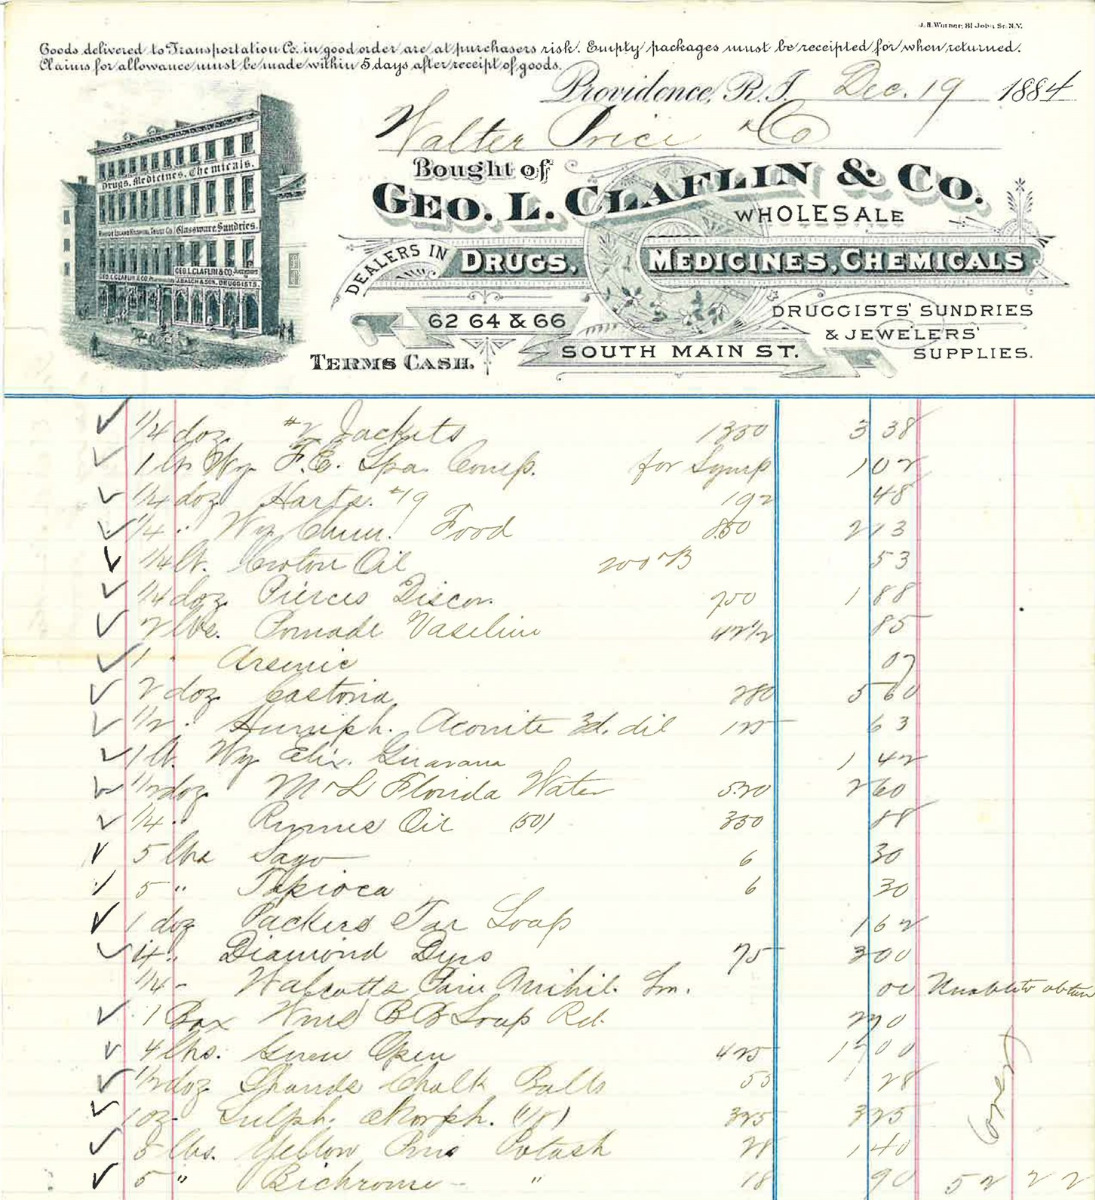 J. H. Warner, 81 John St. N.Y.
Goods delivered to Transportation Co. in good order are at purchasers risk. Empty packages must be receipted for when returned.
Claims for allowance must be made within 5 days after receipt of goods.
Providence, R.I. Dec. 19 1884
Walter Price & Co
Bought of
GEO. L. CLAFLIN & CO.
WHOLESALE
DEALERS IN DRUGS, MEDICINES, CHEMICALS
62 64 & 66
SOUTH MAIN ST.
DRUGGISTS' SUNDRIES
& JEWELERS'
SUPPLIES.
TERMS CASH.
Drugs, Medicines, Chemicals.
RHODE ISLAND HOSPITAL TRUST CO. Glassware, Sundries.
GEO. L. CLAFLIN & CO.
GEO. L. CLAFLIN & CO.
DRUGGISTS.
1/4 doz #2 Jackets 1350 3 38
1 lb Wy F.E. Spa. Comp. for Symp 1 02
1/4 doz Harts. #19 192 48
1/4 " Wy Food 850 2 13
1/4 lb. Croton Oil 53
1/4 doz Pierces Discov. 750 1 88
2 lbs. Pomade Vaseline 42 1/2 85
1 " Arsenic 07
2 doz Castoria 280 5 60
1/2 " Humph. Aconite 3d. dil 125 63
1 lb. Wy Elix. Guarana 1 42
1/2 doz M & L Florida Water 520 2 60
1/4 " Oil (50) 350 88
5 lbs Sago 6 30
5 " Tapioca 6 30
1 doz Packers Tar Soap 1 62
4 " Diamond Dyes 75 3 00
1/4 - Walcotts Pain Annihil. Sm. 00 Unable to obtain
1 Box Wms B B Soap Rd. 2 70
4 lbs. Gum Opium 425 17 00
1/2 doz Chalk Balls 55 28
1 oz Sulph. Morph. (1/8) 325 3 25
5 lbs. Yellow Prus Potash 28 1 40
5 " Bichrome - " 18 90 52 22
over